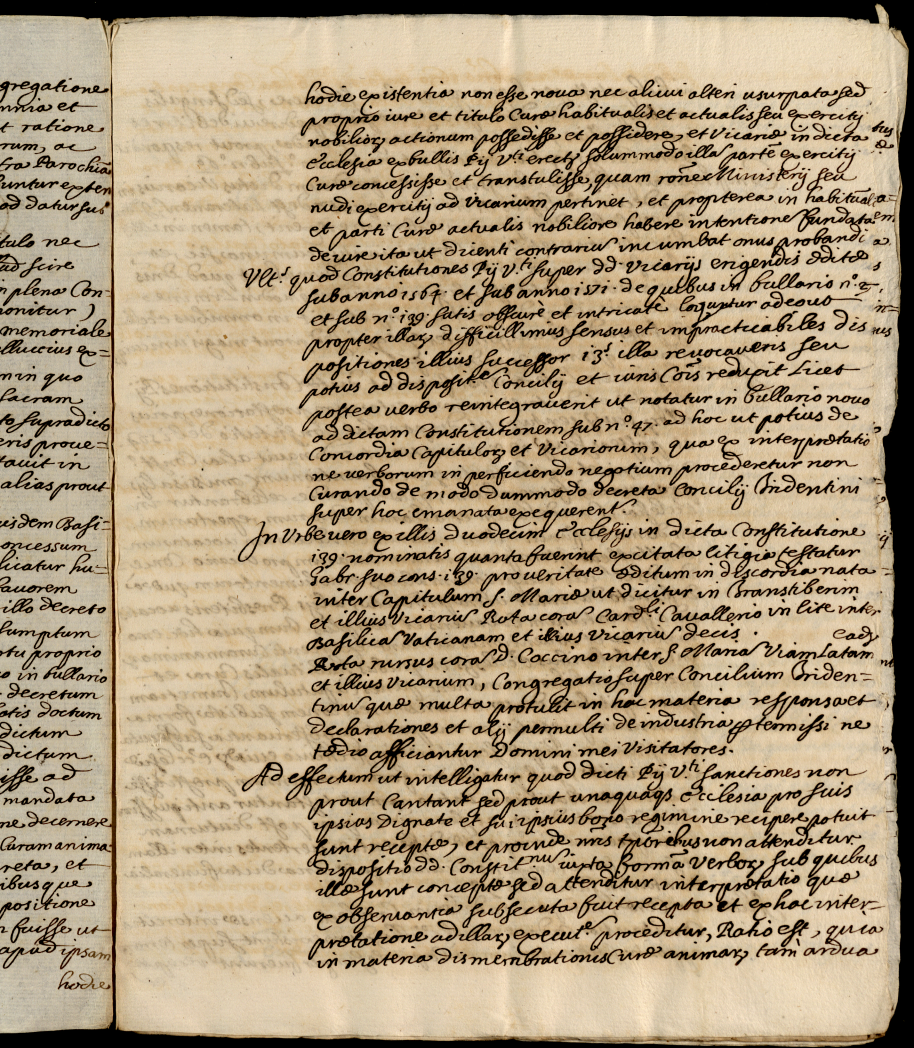 gregatione
mnia et
t ratione
rum, ac
tra Parochia
untur exten
ad datur sus
tulo nec
ad scire
n plena Con-
onitur,)
memoriale
lluccius ex=
m in quo
lacram
to supradicto
eris proue=
tauit in
alias prout
uisdem Basi-
oncessum
licatur hu-
fauorem
illo decreto
sumptum
rtu proprio
o in bullario
decretum
latis doctum
dictum
dictum
isse ad
mandata
ne decernere
Curam anima
reta, et
ibus que
positione
n fuisse ut
apud ipsam
hodie
hodie existentia non esse noua nec alicui alteri usurpata sed
proprio iure et titulo Curæ habitualis et actualis seu exercitij
nobilior actionum possedisse et possidere, et Vicariæ in dicta
Ecclesia ex bullis Pij V.ti erectæ solummodo illā partē exercitij
Curæ concessisse et transtulisse, quam rōne Ministerij seu
nudi exercitij ad Vicarium pertinet, et propterea in habituāli
et parti Curæ actualis nobiliore habere intentione fundata
de iure ita ut dicenti contrariū incumbat onus probandi
Vlt.s quod Constitutiones Pij V.ti super dd. Vicarijs erigendis æditæ
sub anno 1564. et sub anno 1571. de quibus in bullario n.o 2.
et sub n.o 139. satis obscurè et intricatè loquntur adeout
propter illar difficillimus sensus et impracticabiles dis
positiones illius successor 13.s illa revocaueris seu
potius ad disposite Concilij et iuris Cōis reducit licet
postea verbo reintegrauerit ut notatur in bullario nouo
ad dictam Constitutionem sub n.o 47. ad hoc ut potius de
concordia Capitulor et Vicariorum, qua ex interpretatio
ne verborum in perficiendo negotium procederetur non
curando de modo dummodo decreta Concilij Tridentini
super hoc emanata exequerent.r
In Vrbe vero ex illis duodecim Ecclesijs in dicta Constitutione
139. nominatis quanta fuerint excitata litigia testatur
Gabr. suo cons. 139. pro veritate æditum in discordia nata
inter Capitulum S. Mariæ ut dicitur in Transtiberim
et illius Vicariū Rota corā Card.li Cavallerio in lite inter
Basilicā Vaticanam et illius Vicariū decis. ead.
Rota rursus corā D. Coccino inter S. Mariā Viam Latam
et illius Vicarium, Congregatio super Concilium Triden=
tinū quæ multa protulit in hac materia responsa et
declarationes et alij permulti de industria prætermissi ne
tædio afficiantur Domini mei Visitatores.
Ad effectum ut intelligatur quod dicti Pij V.ti sanctiones non
prout Cantant sed prout unaquaqs Ecclesia pro suis
ipsius Dignate et sui ipsius bono regimine recipere potuit
sunt receptæ, et proinde nris tporibus non attenditur
dispositio dd. Constit.nū iuxta formā verbor sub quibus
illæ sunt conceptæ sed attenditur interpretatio quæ
ex obseruantia subsecuta fuit recepta et ex hac inter-
prætatione ad illar execut.e proceditur, Ratio est, quia
in materia dismembrationis Curæ animar tam ardua